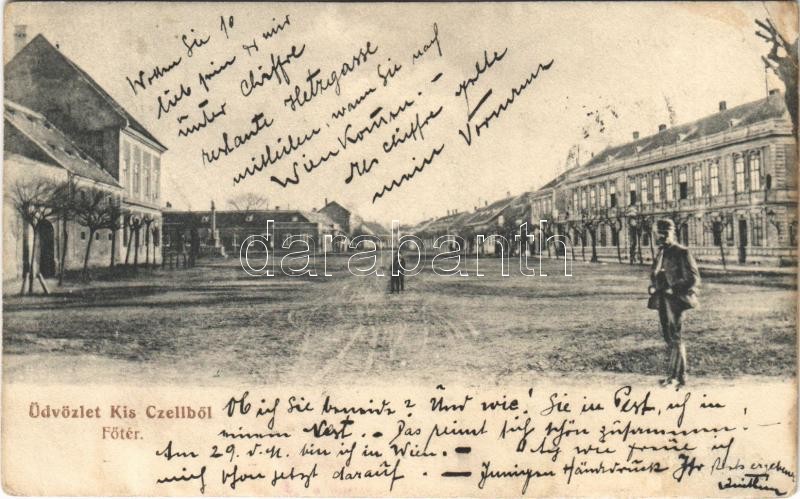 Wollen Sie so
lieb sein & mir
unter Chiffre
restante Hetzgasse
mitteilen, wann Sie nach
Wien kommen. -
Als Chiffre gelte
mein Vorname
darabanth
Üdvözlet Kis Czellből
Főtér.
Ob ich Sie beneide? Und wie! Sie in Pest, ich in
einem Nest. - Das reimt sich schön zusammen!
Am 29. d. M. bin ich in Wien. - Ach wie freue ich
mich schon jetzt darauf. - Innigen Händedruck Ihr stets ergebener